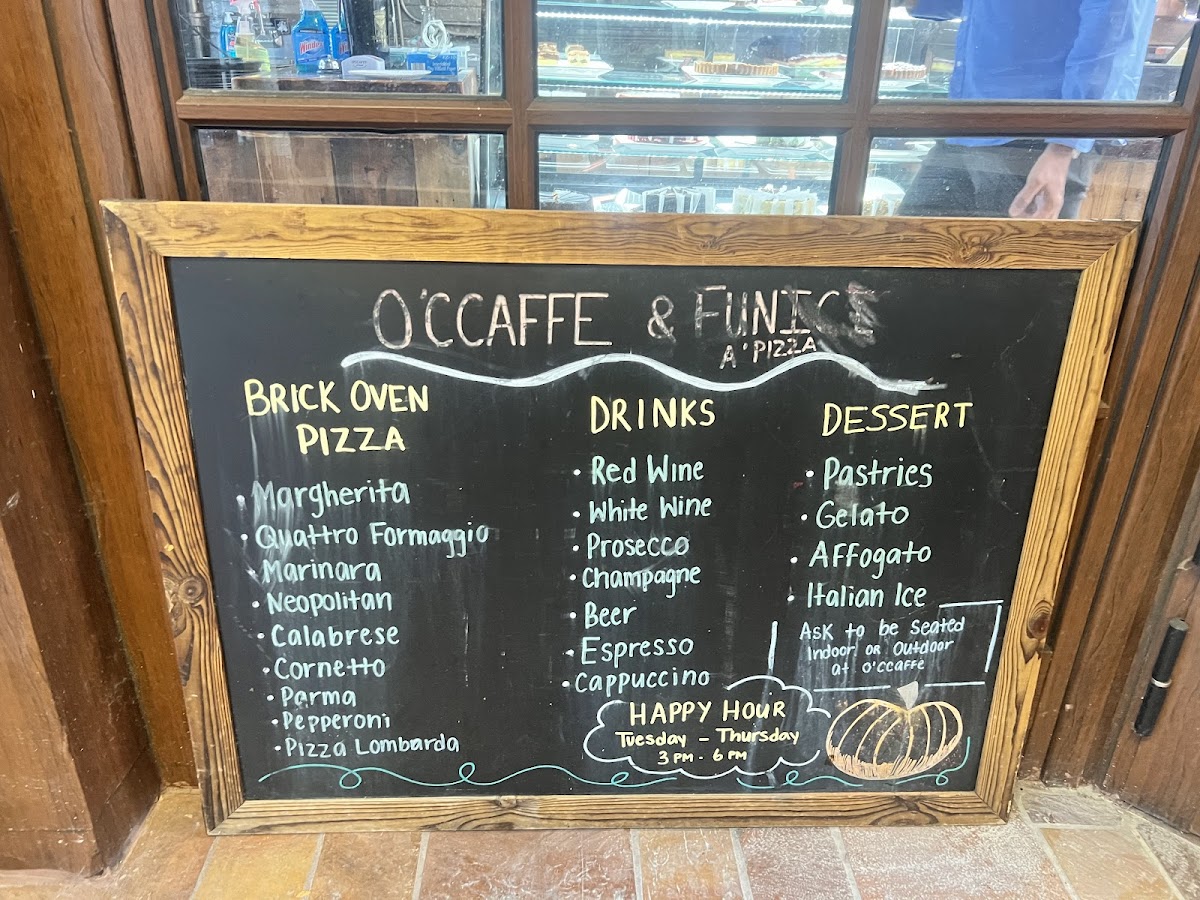 Windex
O'CCAFFE & FUNICI
A'PIZZA
BRICK OVEN
PIZZA
• Margherita
• Quattro Formaggio
• Marinara
• Neopolitan
• Calabrese
• Cornetto
• Parma
• Pepperoni
• Pizza Lombarda
DRINKS
• Red Wine
• White Wine
• Prosecco
• Champagne
• Beer
• Espresso
• Cappuccino
HAPPY HOUR
Tuesday - Thursday
3 PM - 6 PM
DESSERT
• Pastries
• Gelato
• Affogato
• Italian Ice
Ask to be Seated
Indoor or Outdoor
at O'CCAFFE